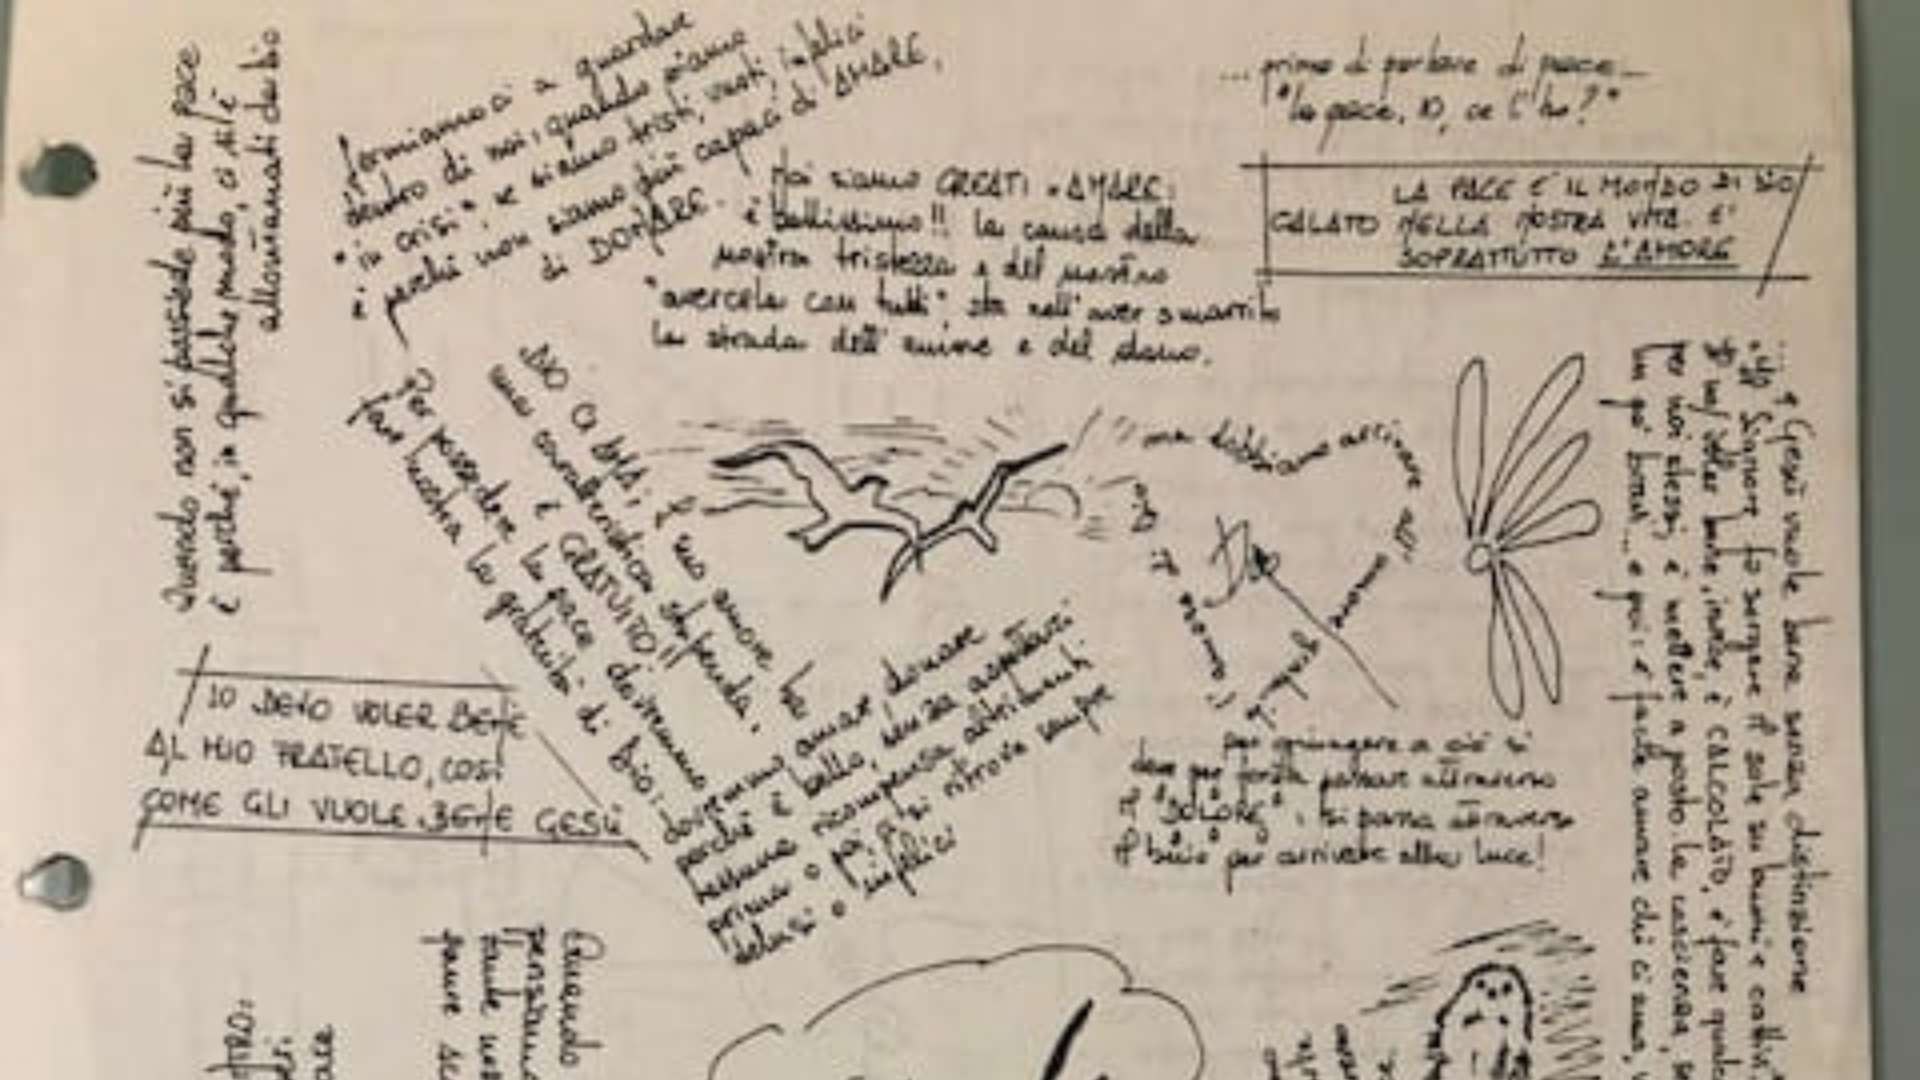 Quando non si possiede più la pace
è perché, in qualche modo, ci si è
allontanati da Dio
fermiamoci a guardare
dentro di noi, quando siamo
"in crisi", se siamo tristi, vuoti, infelici
è perché non siamo più capaci di AMARE,
di DONARE.
Noi siamo CREATI x AMARE:
è bellissimo!! la causa della
nostra tristezza e del nostro
"avercela con tutti", sta nell'aver smarrito
la strada dell'amore e del dono.
... prima di parlare di pace...
"la pace, IO, ce l'ho?"
LA PACE E' IL MONDO DI DIO
CALATO NELLA NOSTRA VITA. E'
SOPRATTUTTO L'AMORE
DIO CI AMA; il suo amore ha
una caratteristica stupenda,
è GRATUITO!!
Per possedere la pace dovremmo
fare nostra la gratuità di Dio:
dovremmo amare, donare
perché è bello, senza aspettarci
nessuna ricompensa altrimenti
prima o poi ci si ritrova sempre
delusi o infelici
ma dobbiamo arrivare ad
Dio
per giungere a ciò si
deve per forza passare attraverso
il "DOLORE", si passa attraverso
il buio per arrivare alla luce!
IO DEVO VOLER BENE
AL MIO FRATELLO, COSÌ
COME GLI VUOLE BENE GESÙ
... Gesù vuole bene senza distinzione
Signore fa sorgere il sole su buoni e cattivi
voler bene, invece, è CALCOLATO, è fare
per noi stessi, è mettere a posto la coscienza,
un po' bravi... e poi: è facile amare chi ci ama,
Quando
pensiamo